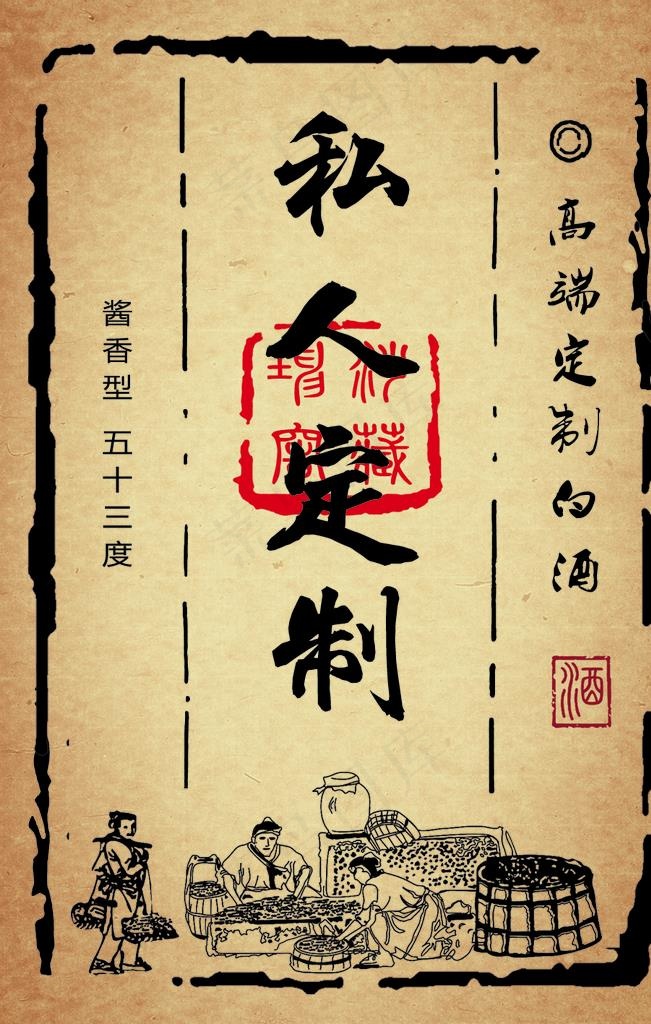 高端定制白酒
酒
私人定制
酱香型 五十三度